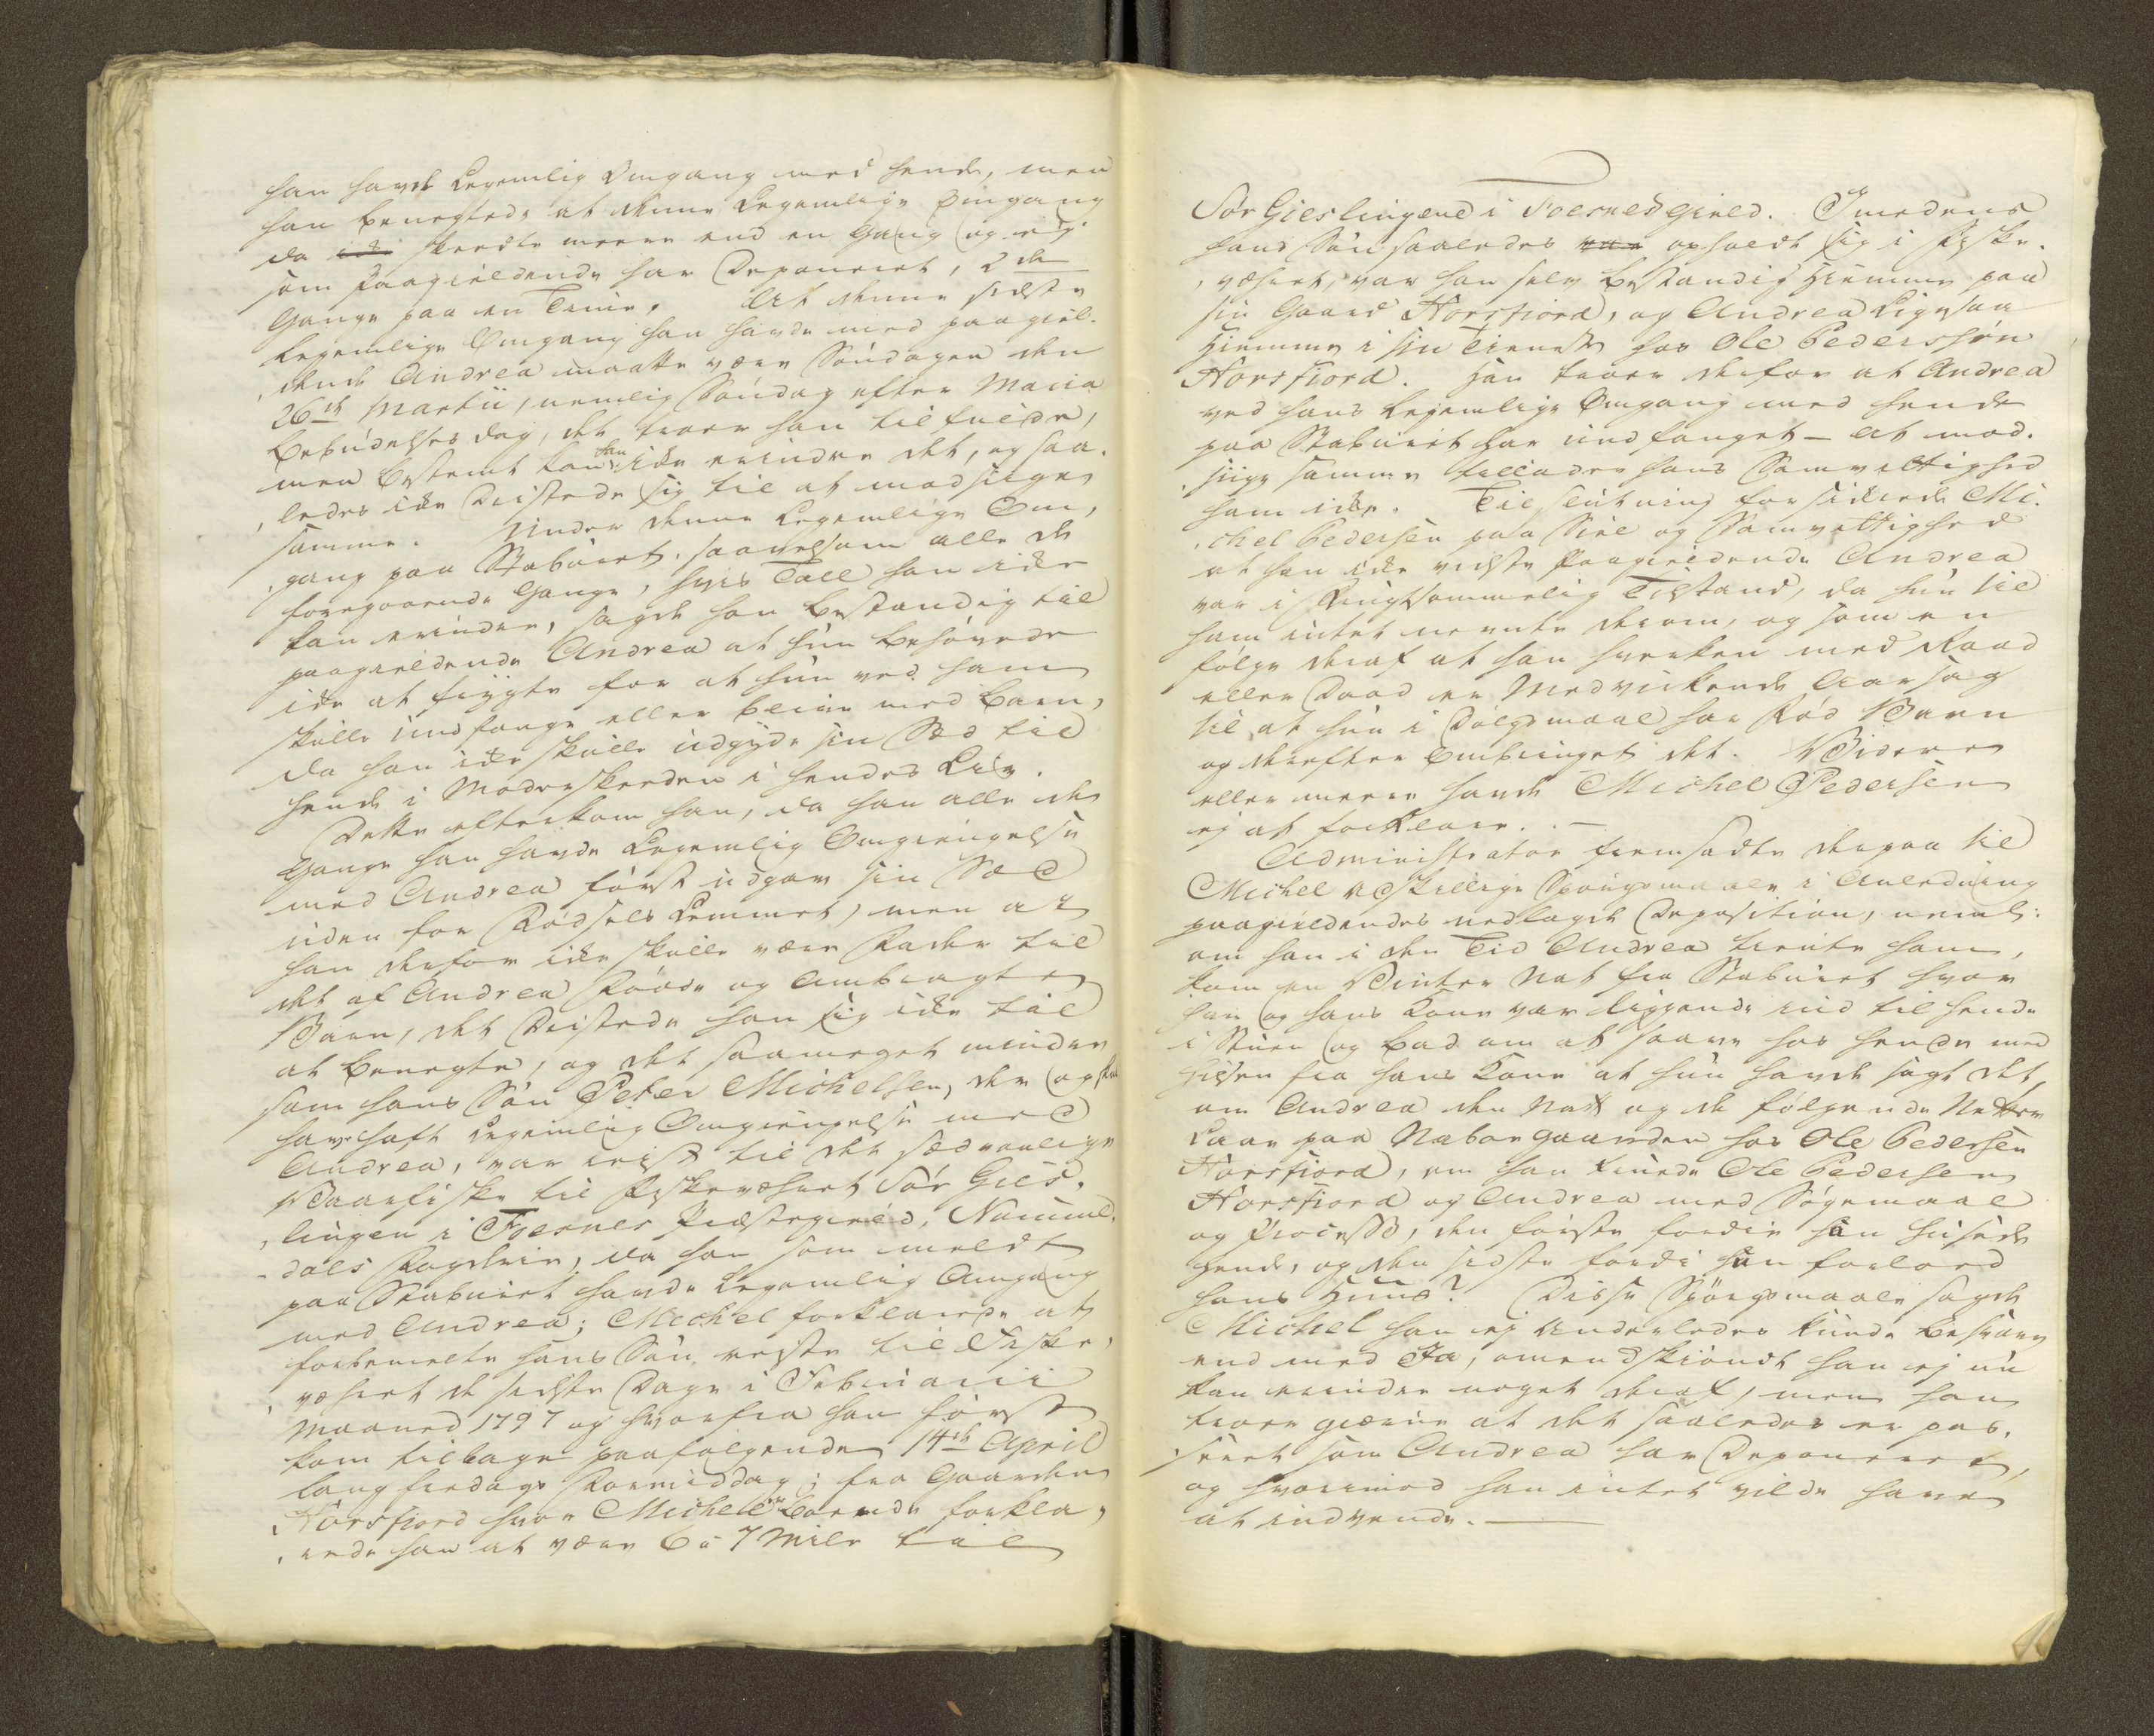 han havde Legemlig Omgang med hende, men
han benegtede at denne Legemlige Omgang
da skeedte meere end en Gang og ej
som Paagieldende har Deponeret, 2de
Gange paa en Time. At denne sidste
Legemlige Omgang han havde med paagiel-
dende Andrea maatte være Søndagen den
26de Martii, nemlig Søndag efter Maria
Bebudelses Dag, det troer han tilfulde,
men bestemt kan han ikke erindre det, og saa-
ledes ikke Dristede sig til at modsige
samme. Under denne Legemlige Om-
gang paa Staburet, saavelsom alle de
foregaaende Gange, hvis Tall han ikke
kan erindre, sagde han bestandig til
paagieldende Andrea at hun behøvede
ikke at frygte for at hun ved ham
skulle undfange eller blive med Barn,
da han ikke skulle udgyde sin Sæd til
hende i Moderskeeden i hendes Liv.
Dette efterkom han, da han alle de
Gange han havde Legemlig Omgiengelse
med Andrea først udgav sin Sæd
uden for Fødsels Lemmet, men at
han derfor ikke skulle være Fader til
det af Andrea fødde og Ombragte
Barn, det Dristede han sig ikke til
at benegte, og det saameget mindre
som hans Søn Peter Michelsen, der og skal
have haft Legemlig Omgiengelse med
Andrea, var reist til det sædvanlige
Vaarfiske til Fiskeværet Sør Gies-
lingen i Foesnes Præstegield, NummE-
dals Fogderie, da han som meldt
paa Staburet havde Legemlig Omgang
med Andrea; Michel forklarede at
forbemelte hans Søn reiste til Fiske-
været de sidste Dage i Februarii
Maaned 1797 og hvorfra han først
kom tilbage paafølgende 14de April
lang fredags Formiddag; fra Gaarden
Horsfiord hvor Michel boende forkla-
rede han at være 6 a 7 Mile til
Sør Gieslingend i Foesnes Gield. Imedens
hans Søn saaledes opholdt sig i Fiske-
været, var han selv bestandig Hiemme paa
sin Gaard Horsfiord, og Andrea Ligesaa
Hiemme i sin Tieneste hos Ole Pederssøn
Horsfiord. Han troer derfor at Andrea
ved hans Legemlige Omgang med hende
paa Staburet har undfanget - at mod-
sige samme tillader hans Samvittighed
ham ikke. Til slutning forsikrede Mi-
chel Pedersen paa Siel og Samvittighed
at han ikke vidste Paagieldende Andrea
var i Frugtsommelig Tilstand, da hun til
ham intet nevnte derom, og som en
følge deraf at han hverken med Raad
eller Daad er Medvirkende Aarsag
til, at hun i Dølgsmaal har Fød Barn
og derefter Ombringet det. Videre
eller meere havde Michel Pedersen
ej at forklare. -
Administrator fremsadte derpaa til
Michel adskillige Spørgsmaale i Anledning
paagieldendes nedlagde Deposition, neml:
om han i den Tid Andrea tiente ham,
kom en Vinter Nat fra Staburet hvor
han og hans Kone var liggende ind til hende
i Stuen og bad om at sove hos hende med
hilsen fra hans Kone at hun havde sagt det,
om Andrea den Natt og de følgende Netter
Laae paa Naboe Gaarden hos Ole Pedersen
Horsfiord, om han truede Ole Pedersen
Horsfiord og Andrea med Søgemaal
og Process, den første fordie han husede
hende, og den sidste fordi hun forlod
hans Huus? Disse Spørgsmaale sagde
Michel han ej Anderledes kunde besvare
end med Ja, omendskiøndt han ej nu
kan erindre noget deraf, men han
troer gierne at det saaledes er pas-
seret som Andrea har Deponeret,
og hvorimod han intet vilde have
at indvende. -